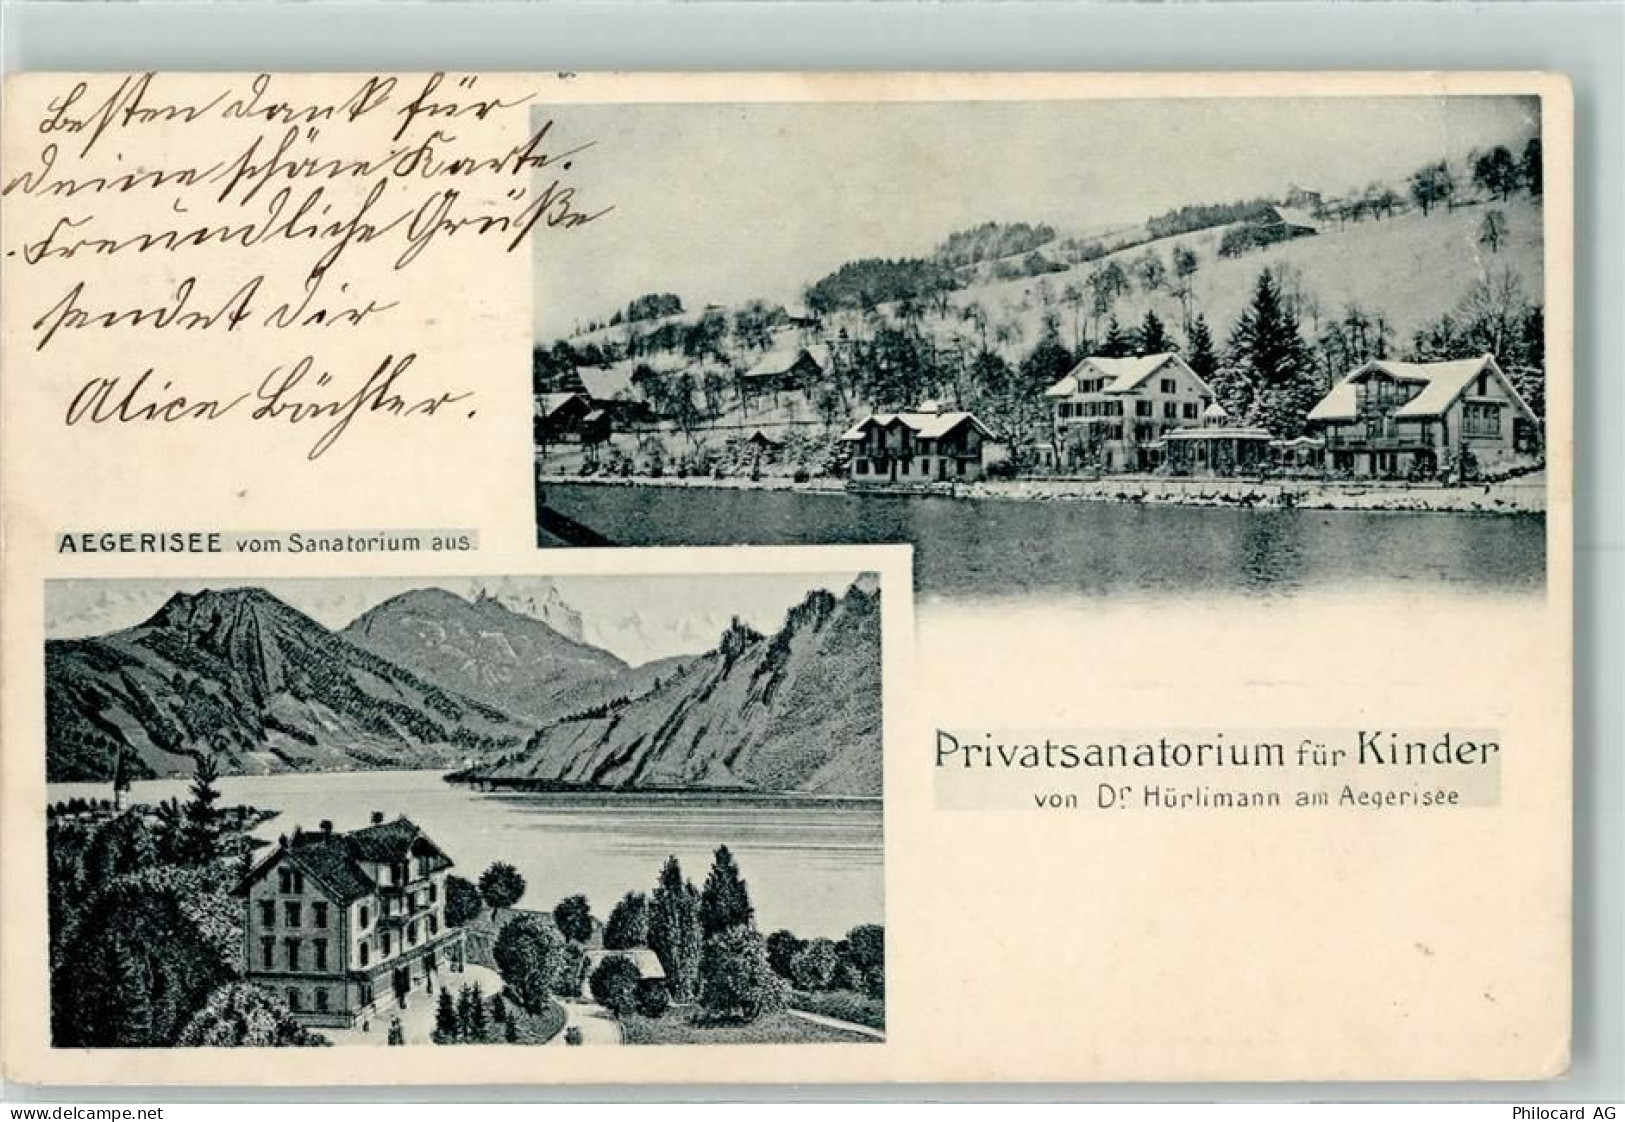 Besten Dank für
deine schöne Karte.
Freundliche Grüße
sendet dir
Alice Bächler.
AEGERISEE vom Sanatorium aus.
Privatsanatorium für Kinder
von Dr Hürlimann am Aegerisee
www.delcampe.net
Philocard AG